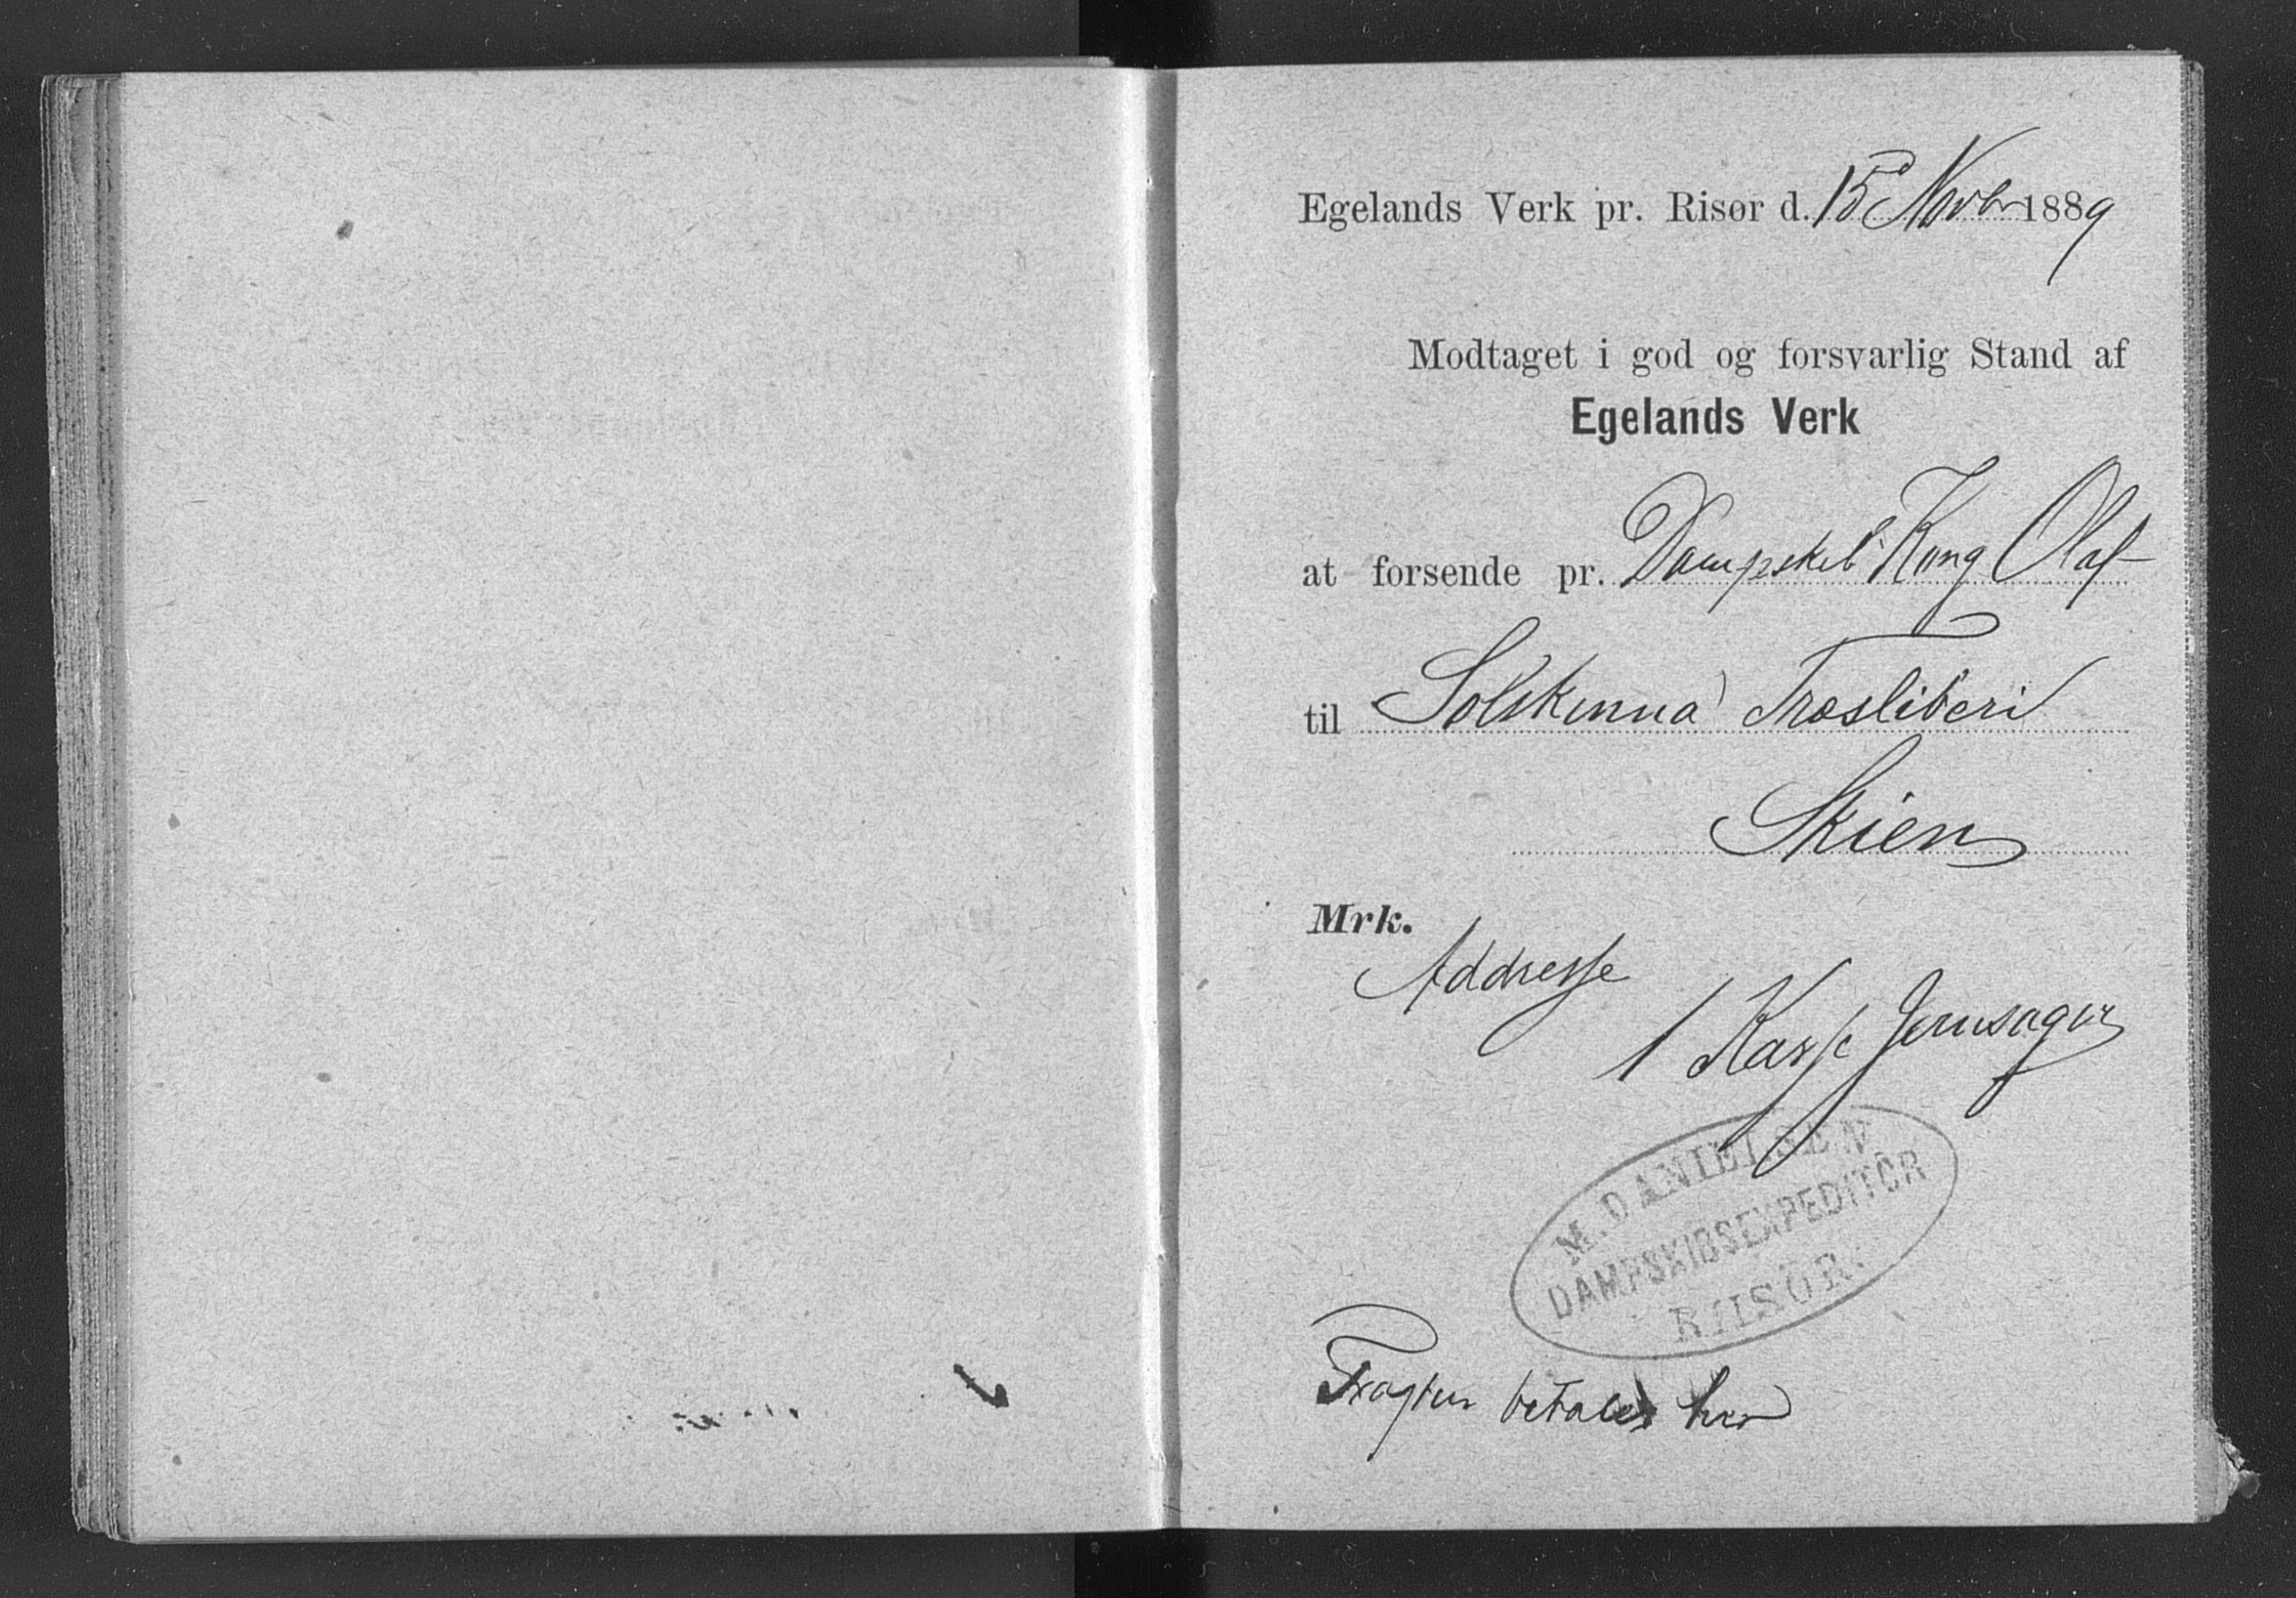 Egelands Verk pr. Risør d. 15 Novbr 1889
Modtaget i god og forsvarlig Stand af
Egelands Verk
at forsende pr. Dampskib Kong Olaf
til Solskinnd Træsliberi
Skien
Mrk.
Addresse
1 Kasse Jernsager
M. DANIELSEN
DAMPSKIBSEXPEDITØR
RIISØR.
Fragten betales her